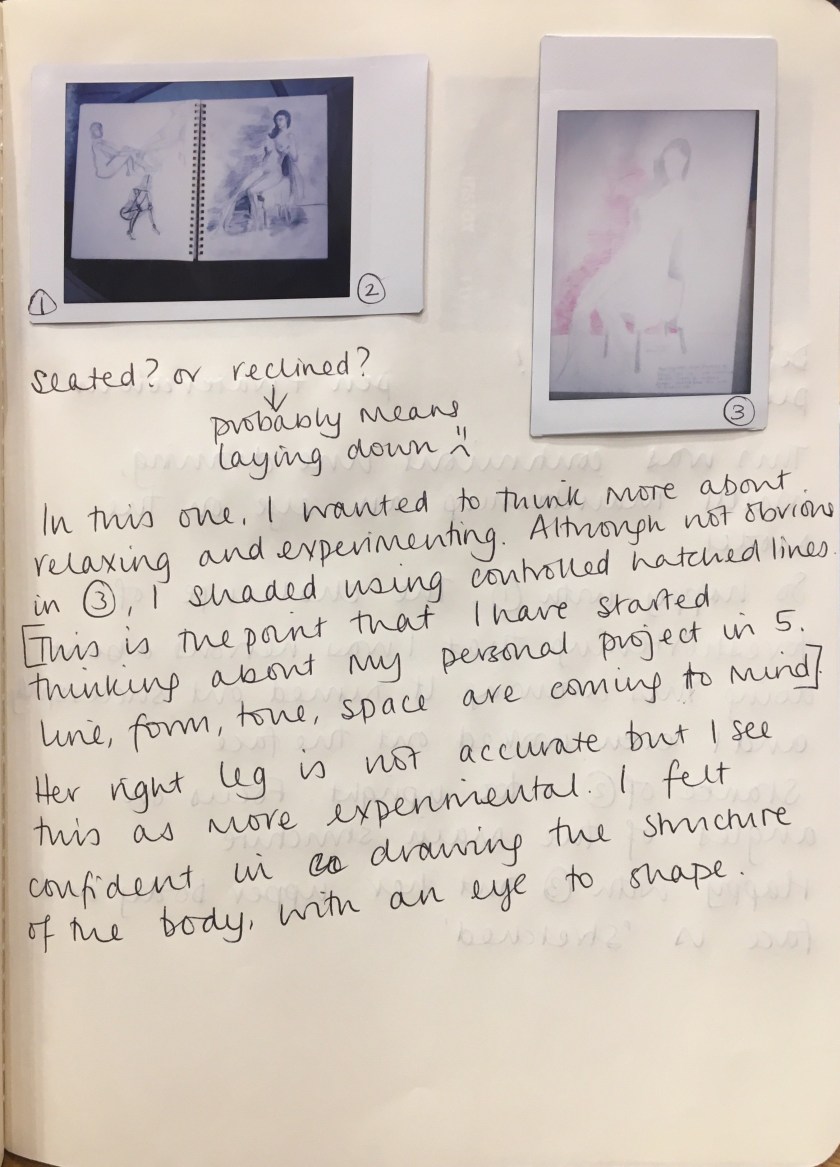 ①
②
③
seated? or reclined?
↓
probably means
laying down
In this one, I wanted to think more about
relaxing and experimenting. Although not obvious
in ③, I shaded using controlled hatched lines.
[This is the point that I have started
thinking about my personal project in 5.
line, form, tone, space are coming to mind].
Her right leg is not accurate but I see
this as more experimental. I felt
confident in drawing the structure
of the body, with an eye to shape.